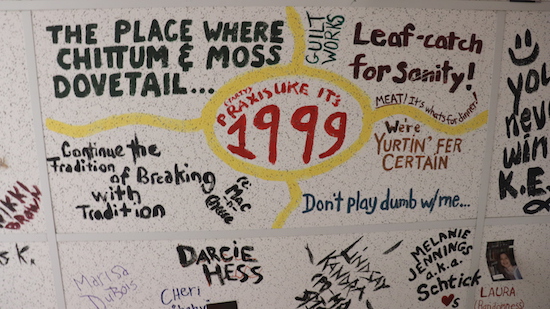 THE PLACE WHERE
CHITTUM & MOSS
DOVETAIL...
GUILT
WORKS
Leaf-catch
for Sanity!
MEAT! It's what's for dinner!
(PARTY)
PRAXIS LIKE IT'S
1999
Were
YURTIN' FER
CERTAIN
Continue the
Tradition of Breaking
with
Tradition
Mac
Cheese
Don't play dumb w/me...
you
never
win
K.E.
NIKKI
BROWN
K.
Marisa
DuBois
DARCIE
HESS
CHERI
LINDSAY
KANDRA
MELANIE
JENNINGS
a.k.a.
Schtick
LAURA